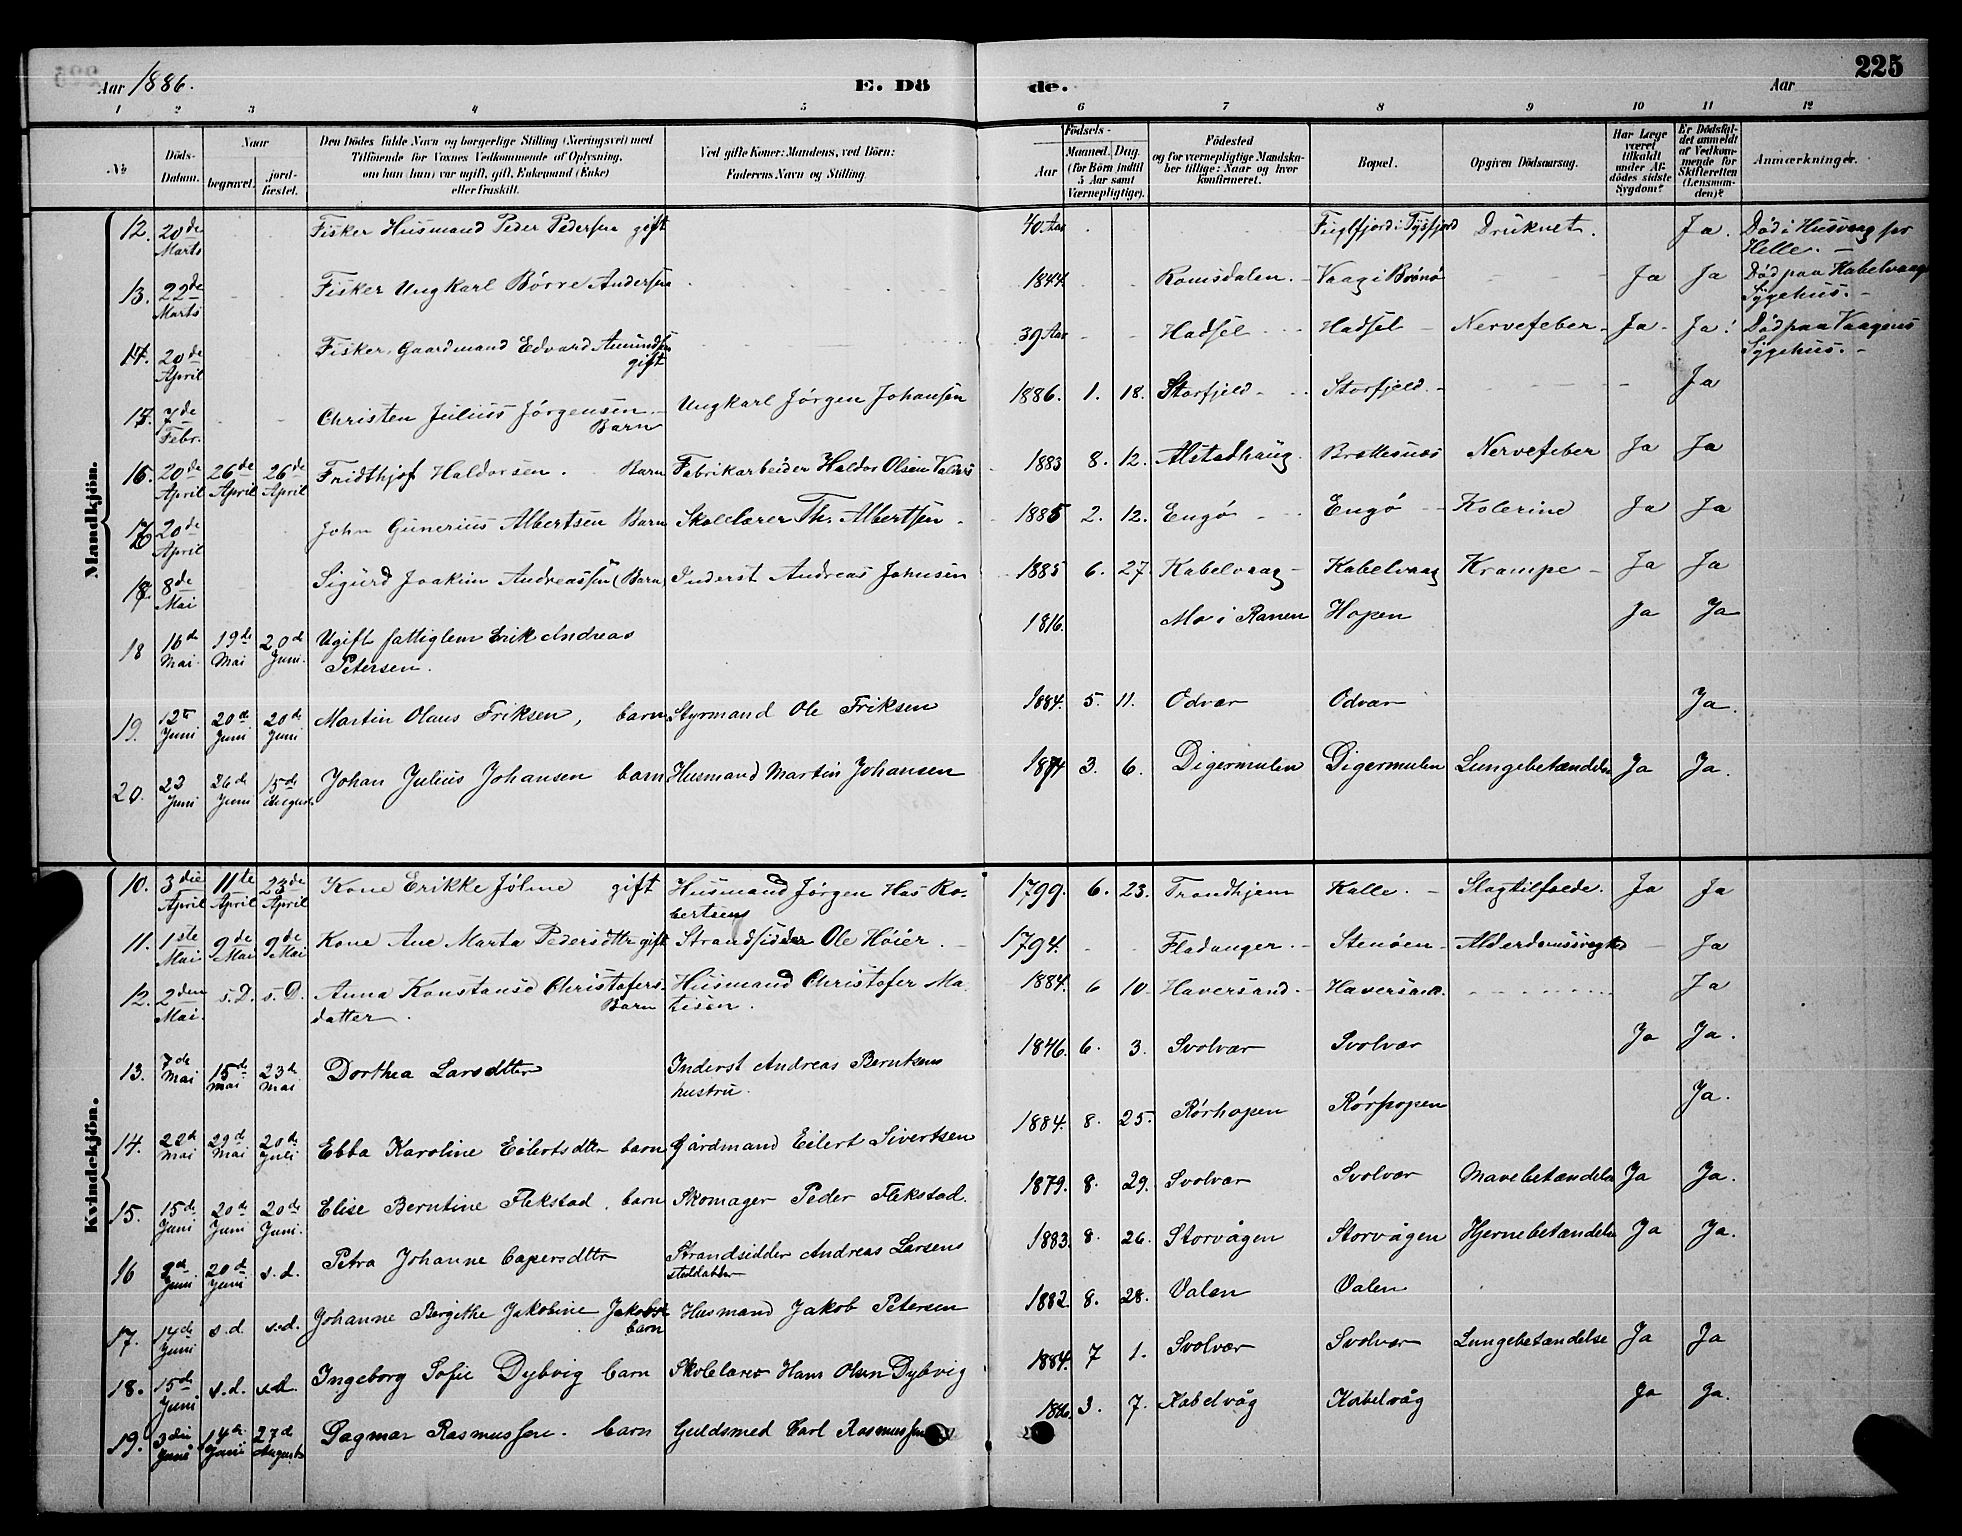 225
Aar 1886. E. Dö de. Aar
1 2 3 4 5 6 7 8 9 10 11 12
No Döds-Datum. Naar begravet. jordfæstet. Den Dödes fulde Navn og borgerlige Stilling (Næringsvei) med Tilföiende for Voxnes Vedkommende af Oplysning, om han (hun) var ugift, gift, Enkemand (Enke) eller fraskilt. Ved gifte Koner: Mandens, ved Börn: Faderens Navn og Stilling. Födsels- Aar Maaned. Dag. (for Börn indtil 5 Aar samt Værnepligtige). Födested og for værnepligtige Mandskaber tillige: Naar og hvor konfirmeret. Bopæl. Opgiven Dödsaarsag. Har Læge været tilkaldt under Afdödes sidste Sygdom? Er Dödsfaldet anmeldt af Vedkommende for Skifteretten (Lensmanden)? Anmærkninger.
Mandkjön.
12. 20de Marts Fisker Husmand Peder Pedersen gift 40 Aar Fuglfjord i Tysfjord Druknet. Ja. Död i Husvaag pr Helle.
13. 22de Marts Fisker Ungkarl Börre Andersen 1844 Romsdalen. Vaag i Brönö Ja Ja Död paa Kabelvaag Sygehus.
14. 20de April Fisker, Gaardmand Edvard Amundsen gift 39 Aar Hadsel Hadsel Nervefeber Ja Ja Död paa Vaagens Sygehus.
15. 7de Febr. Christen Julius Jörgensen Barn Ungkarl Jörgen Johansen 1886. 1. 18. Storfjeld Storfjeld Ja
16. 20de April 26de April 26de April Fridthjof Haldorsen. Barn Fabrikarbeider Haldor Olsen 1883 8. 12. Alstadhaug Brettesnæs Nervefeber Ja Ja
20de April John Gunerius Albertsen Barn Skolelærer Th. Albertsen 1885 2. 12. Engö Engö Kolerine Ja Ja
8de Mai Sigurd Joakim Andreassen (Barn) Inderst Andreas Johnsen 1885 6. 27. Kabelvaag Kabelvaag Krampe Ja Ja
18 16d Mai. 19de Mai 20d Juni. Ugift fattiglem Erik Andreas Petersen. 1816. Mo i Ranen Hopen Ja Ja
19. 12te Juni 20d Juni 20de Juni Martin Olaus Friksen, barn Styrmand Ole Friksen 1884. 5. 11. Odvær Odvær Ja.
20. 23 Juni 26de Juni 15de August. Johan Julius Johansen barn Husmand Martin Johansen 3. 6. Digermulen Digermulen Lungebetændelse Ja Ja.
Kvindekjön.
10. 3die April 11te April 23de April Kone Erikke Jöhne gift Husmand Jörgen Has Robertsens 1799. 6. 23. Trondhjem Kalle. Slagtilfælde. Ja Ja
11. 1ste Mai 9de Mai 9de Mai Kone Ane Marta Pedersdttr gift Strandsidder Ole Höier. 1794. Fladanger. Stenöen Alderdomssvaghed Ja
12. 2den Mai. s. D. s. D. Anna Konstanse Christofersdatter. Barn Husmand Christofer Matisen. 1884. 6 10. Haversand Haversand. Ja
13. 7de Mai 15de Mai 23de Mai Dorthea Larsdttr Inderst Andreas Berntsens hustru. 1846. 6. 3. Svolvær Svolvær Ja Ja.
14. 22d Mai 29d Mai 20de Juli Ebba Karoline Eilertsdttr barn Gårdmand Eilert Sivertsen 1884. 8. 25. Rörhopen Rörhopen Ja.
15. 15de Juni 20de Juni 20de Juni. Elise Berntine Flekstad. barn Skomager Peder Flekstad. 1879. 8. 29. Svolvær Svolvær Mavebetændelse Ja Ja.
16 Juni 20de Juni s. d. Petra Johanne Caspersdttr Strandsidder Andreas Larsens steddatter 1883. 8. 26. Storvågen Storvågen Hjernebetændelse Ja Ja.
17. 14de Juni s. d. s. d. Johanne Bergithe Jakobine barn Husmand Jakob Petersen 1882. 8. 28. Valen Valen
18. 15de Juni s. d. s. d. Ingeborg Sofie Dybvig barn Skolelærer Hans Olsen Dybvig 1884. 7 1. Svolvær Svolvær Lungebetændelse Ja Ja
19. 3die Juni 14de Juni 27d August Dagmar Rasmussen. barn Guldsmed Carl Rasmussen 1886. 3. 7. Kabelvåg Kabelvåg Ja Ja.